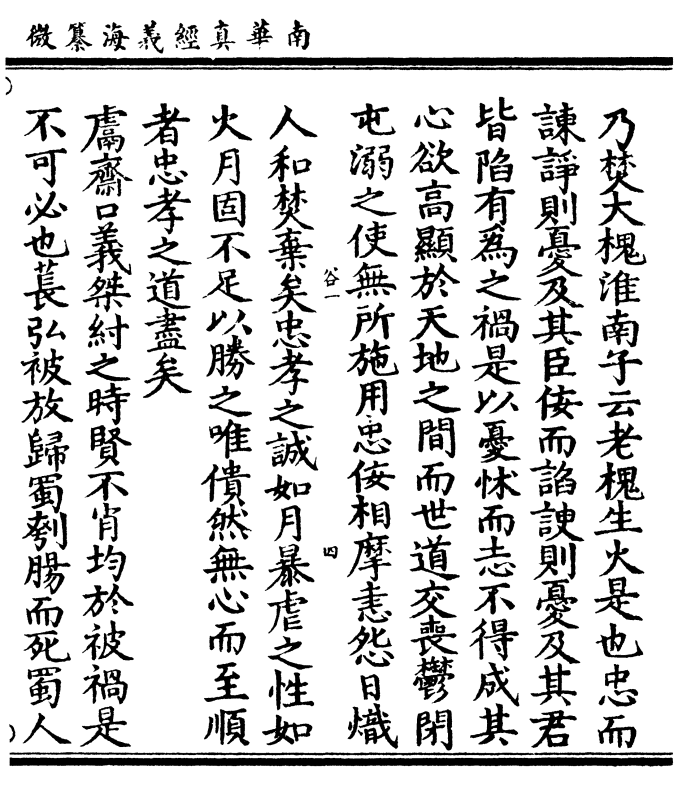 南華真經義海纂微
乃焚大槐淮南子云老槐生火是也忠而
諫諍則憂及其臣佞而諂諛則憂及其君
皆陷有爲之禍是以憂怵而志不得成其
心欲高顯於天地之間而世道交喪鬱閉
屯溺之使無所施用忠佞相摩恚怨日熾
谷一
四
人和焚棄矣忠孝之誠如月暴虐之性如
火月固不足以勝之唯僓然無心而至順
者忠孝之道盡矣
鬳齋口義桀紂之時賢不肖均於被禍是
不可必也萇弘被放歸蜀刳腸而死蜀人